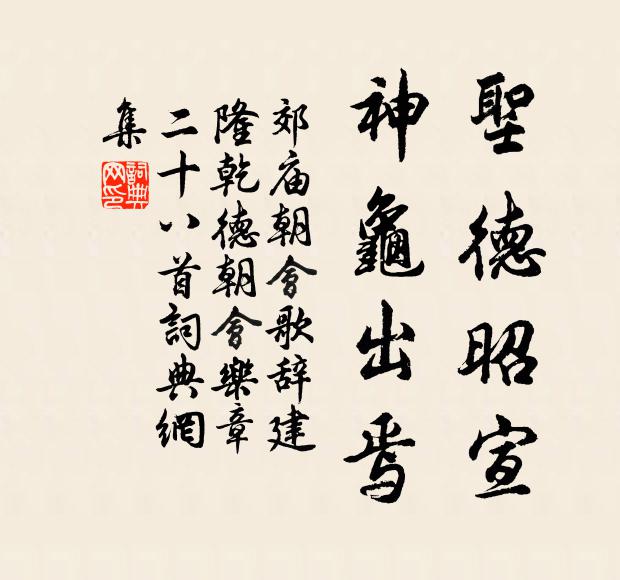 聖德昭宣
神龜出焉
郊庙朝會歌辞建
隆乾德朝會樂章
二十八首詞典網
集
詞典
网印